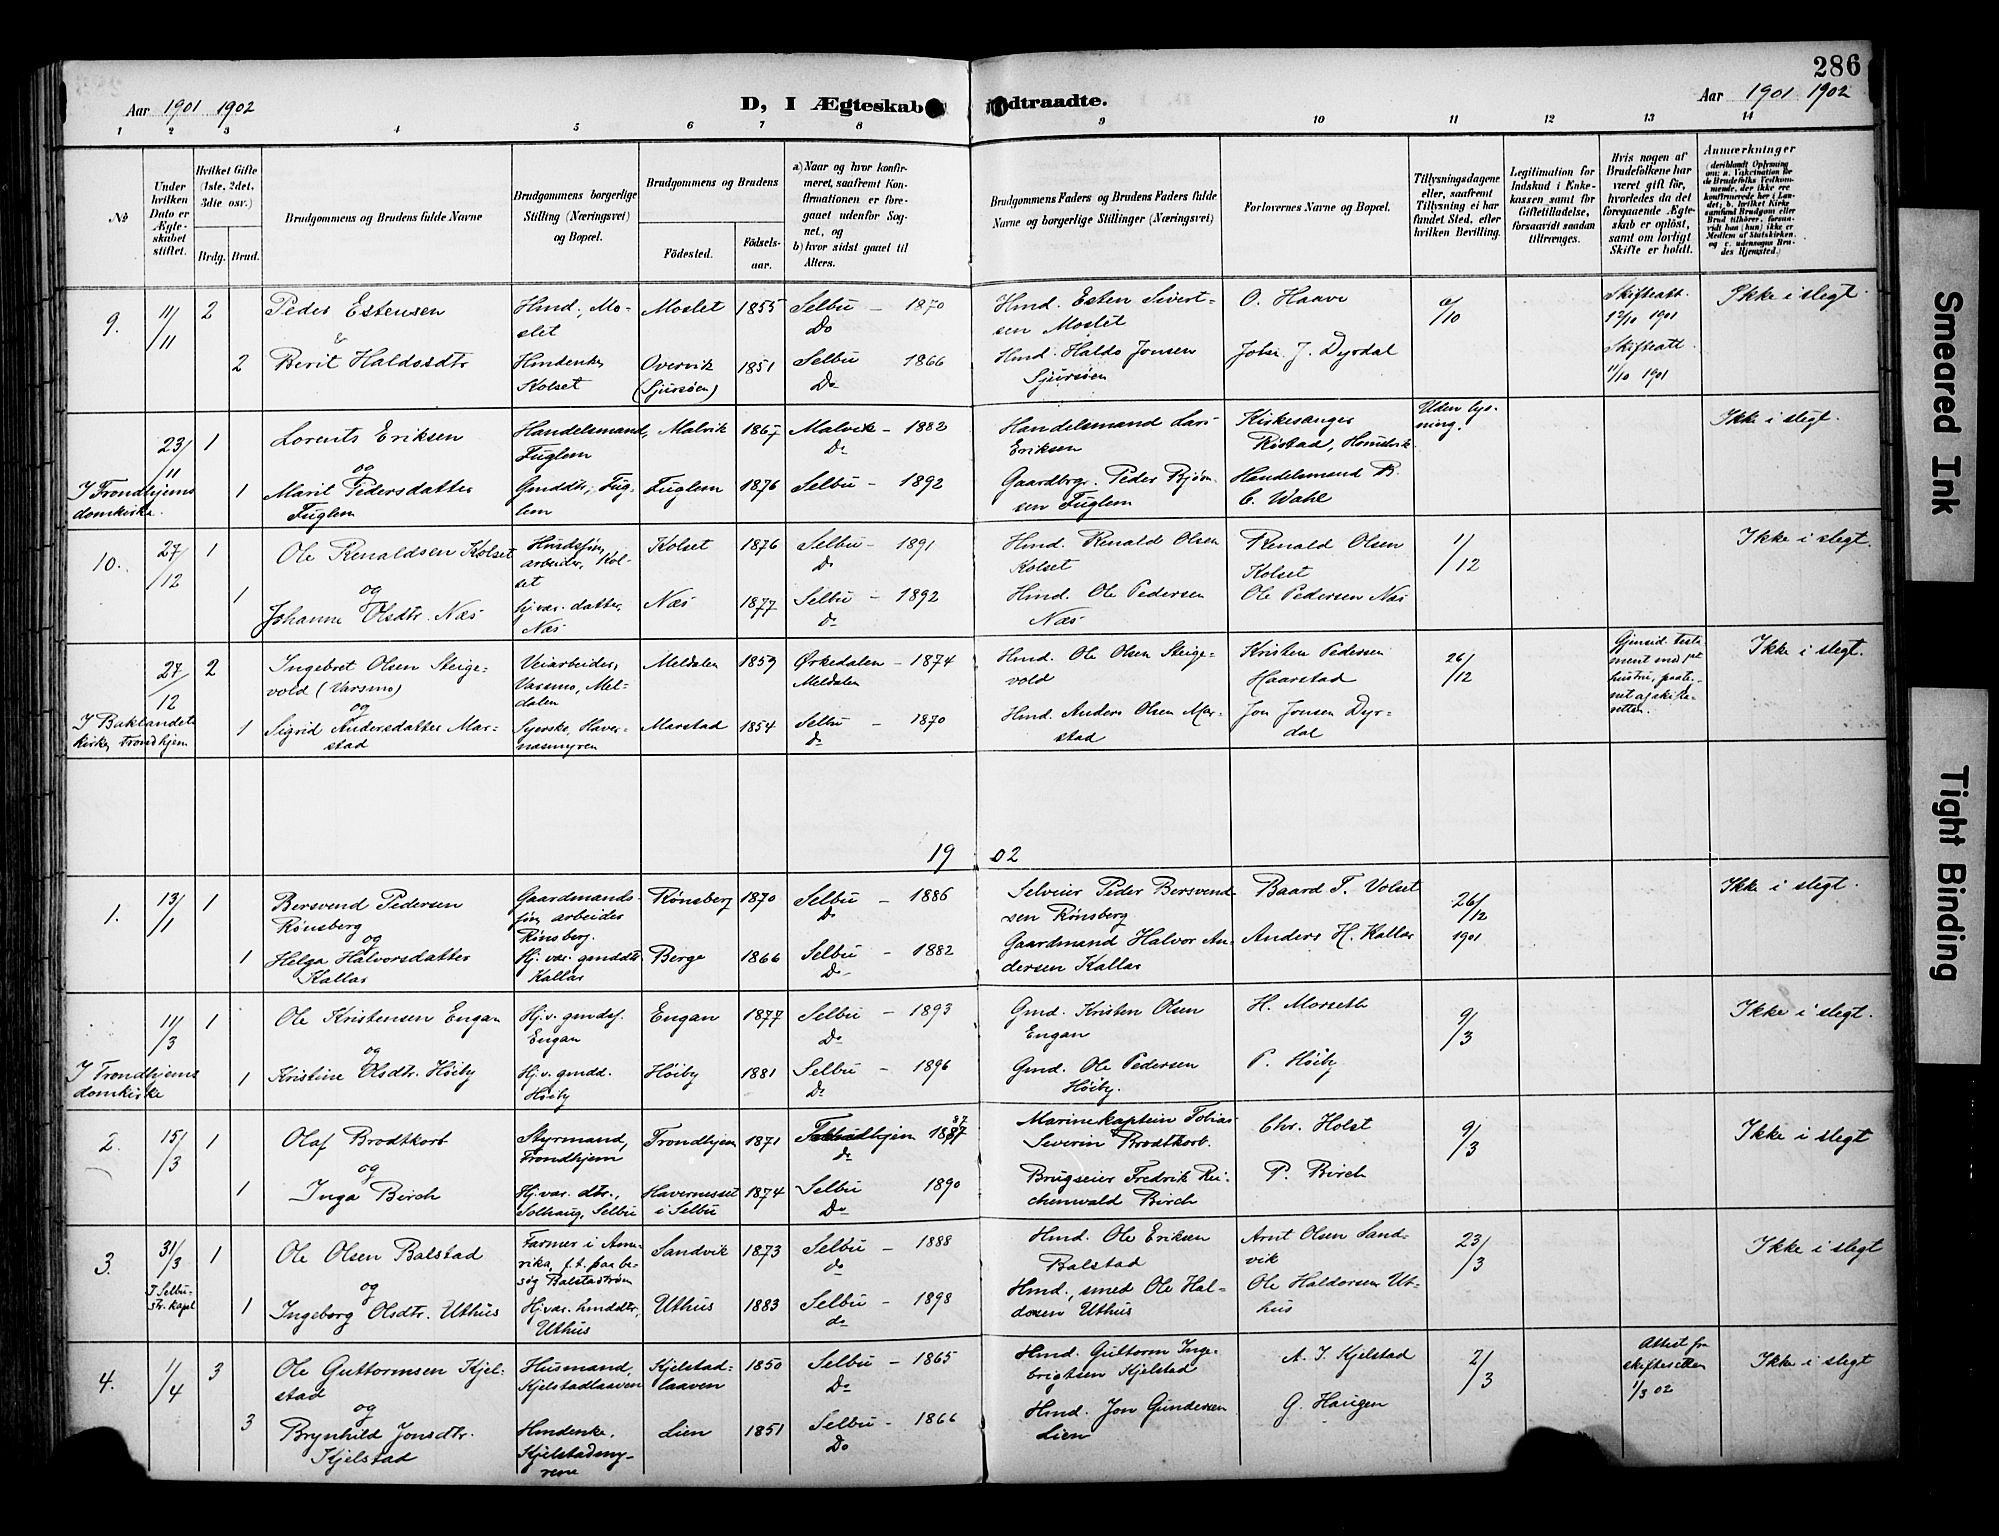 286
Aar 1901 1902
D, I Ægteskab
dtraadte.
Aar 1901 1902
1 2 3 4 5 6 7 8 9 10 11 12 13 14
No
Under hvilken Dato er Ægteskabet stiftet.
Hvilket Gifte (1ste, 2det, 3die osv.)
Brdg. Brud.
Brudgommens og Brudens fulde Navne
Brudgommens borgerlige Stilling (Næringsvei) og Bopæl.
Brudgommens og Brudens
Fødested.
Fødselsaar.
a) Naar og hvor konfirmeret, saafremt Konfirmationen er foregaaet udenfor Sognet, og
b) hvor sidst gaaet til Alters.
Brudgommens Faders og Brudens Faders fulde Navne og borgerlige Stillinger (Næringsvei)
Forlovernes Navne og Bopæl.
Tillysningsdagene eller, saafremt Tillysning ei har fundet Sted, efter hvilken Bevilling.
Legitimation for Indskud i Enkekassen samt for Giftetilladelse, forsaavidt saadan tiltrænges.
Hvis nogen af Brudefolkene har været gift før, hvorledes da det foregaaende Ægteskab er opløst, samt om lovligt Skifte er holdt.
Anmærkninger
(deriblandt Oplysning om: a. Vakcination for de Brudefolks Vedkommende, der ikke ere konfirmerede her i Landet; b. hvilket Kirkesamfund Brudgom eller Brud tilhører, forsaavidt han (hun) ikke er Medlem af Statskirken, og c. udensogns Brudes Hjemsted.)
9. 11/11 2 Peder Estensen Hmd., Moslet Moslet 1855 Selbu – 1870 Do Hmd. Esten Sivertsen Moslet O. Haave /10 Skifteatt. 12/10 1901 Ikke i slegt.
&
2 Berit Haldosdtr Hmdenke, Kolset Overvik (Sjursøen) 1851 Selbu 1866 Do Hmd. Haldo Jonsen Sjursøen Johs. J. Dyrdal Skifteatt. 11/10 1901
23/11 1 Lorents Eriksen Handelsmand, Fuglem Malvik 1867 Malvik – 1882 Do Handelsmand Lars Eriksen Kirkesanger Røstad, Uden lysning. Ikke i slegt.
og
I Trondhjems domkirke. 1 Marit Pedersdatter Fuglem Gmddtr, Fuglem Fuglem 1876 Selbu – 1892 Gaardbrgr. Peder Bjørnsen Fuglem Handelsmand B. C. Wahl
10. 27/12 1 Ole Renaldsen Kolset Husdsføn, arbeider, Kolset Kolset 1876 Selbu – 1891 Do Hmd. Renald Olsen Kolset Renald Olsen Kolset 1/12 Ikke i slegt.
og
1 Johanne Olsdtr. Næs hjvær. datter, Næs Næs 1877 Selbu – 1892 Do Hmd. Ole Pedersen Næs Ole Pedersen Næs
27/12 2 Ingebret Olsen Steigevold (Varsmo) Veiarbeider, Varsmo, Meldalen Meldalen 1859 Ørkedalen – 1874 Meldalen Hmd. Ole Olsen Steigevold Kristen Pedersen Haarstad 26/12 Gjensid. testament med hustru, af skifteretten. Ikke i slegt.
og
I Baklandets kirke, Trondhjem 1 Sigrid Andersdatter Marstad Syerske, Havernæsmyren Marstad 1854 Selbu – 1870 Do Hmd. Anders Olsen Marstad Jon Jonsen Dyrdal
19 02
1. 13/1 1 Bersvend Pedersen Rønsberg Gaardmandsføn, arbeider Rønsberg. Rønsberg 1870 Selbu – 1886 Do Selveier Peder Bersvendsen Rønsberg Baard T. Volset 26/12 1901 Ikke i slegt.
og
1 Helga Halvorsdatter Kallar Hj. vær. gmddtr. Kallar Berge 1866 Selbu – 1882 Do Gaardmand Halvor Andersen Kallar Anders H. Kallar
11/3 1 Ole Kristensen Engan Hj. v. gmdsf. Engan Engan 1877 Selbu – 1893 Do Gmd. Kristen Olsen Engan H. Morseth 9/3 Ikke i slegt.
og
I Trondhjems domkirke 1 Kristine Olsdtr. Høiby Hj. v. gmdd. Høiby Høiby 1881 Selbu – 1896 Do Gmd. Ole Pedersen Høiby. P. Høiby
2. 15/3 1 Olaf Brodtkorb Styrmand, Trondhjem Trondhjem 1871 Trondhjem 1887 do Marinekaptein Tobias Severin Brodtkorb. Chr. Holst 9/3 Ikke i slegt
og
1 Inga Birch Hj. vær. dtr., Solhaug, Selbu Havernesset i Selbu 1874 Selbu 1890 Do Brugseier Fredrik Reichenwald Birch P. Birch
3. 31/3 I Selbustr. kapel 1 Ole Olsen Balstad Farmer i Amerika, f. t. paa besøg Balstadtrøen Sandvik 1873 Selbu – 1888 do Hmd. Ole Eriksen Balstad Arnt Olsen Sandvik 23/3 Ikke i slegt
og
1 Ingeborg Olsdtr. Uthus Hj. vær. hmddtr, Uthus Uthus 1883 Selbu – 1898 do Hmd., smed Ole Haldorsen Uthus Ole Haldorsen Uthus
4. 1/4 3 Ole Guttormsen Kjelstad Husmand, Kjelstadlaaven Kjelstadlaaven 1850 Selbu – 1865 Do Hmd. Guttorm Ingebrigtsen Kjelstad A. I. Kjelstad 2/3 Attest fra skifteretten 1/3 02 Ikke i slegt
og
3 Brynhild Jonsdtr. Kjelstad Hmdenke, Kjelstadmyrene Lien 1851 Selbu – 1866 Do Hmd. Jon Gundersen Lien G. Haugen
Smeared Ink
Tight Binding